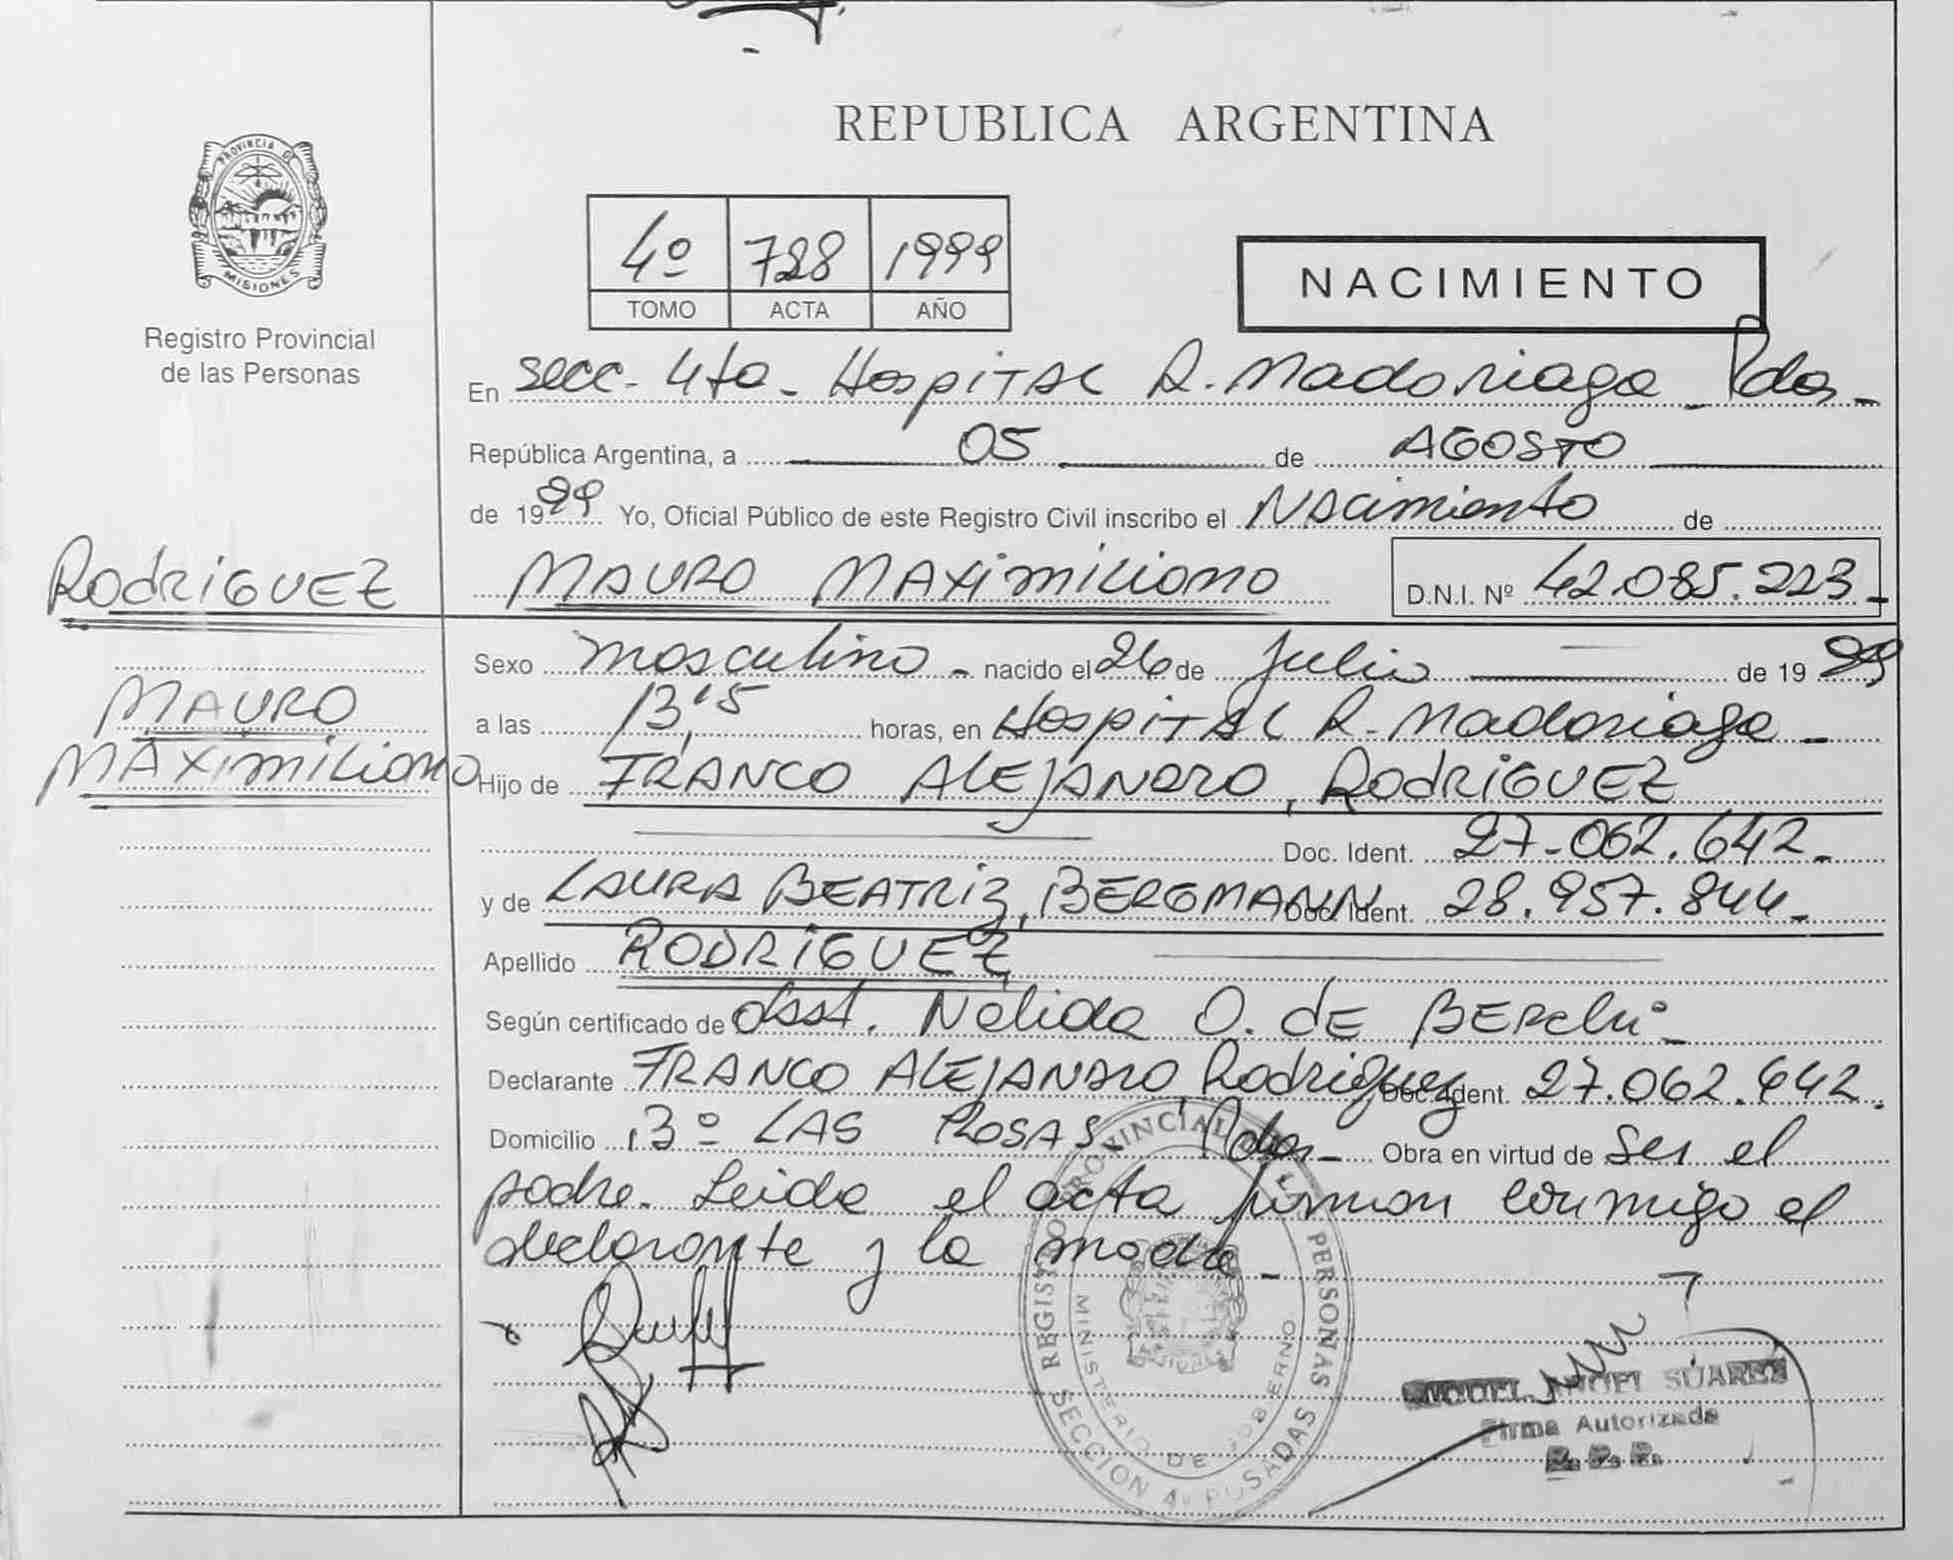 REPUBLICA ARGENTINA
PROVINCIA DE
MISIONES
Registro Provincial
de las Personas
4º 728 1999
TOMO ACTA AÑO
NACIMIENTO
En secc. 4ta - Hospital R. Madariaga - Pdas -
República Argentina, a 05 de AGOSTO
de 1999 Yo, Oficial Público de este Registro Civil inscribo el Nacimiento de
RODRIGUEZ
MAURO MAXIMILIANO D.N.I. Nº 42.085.223-
MAURO
MAXIMILIANO
Sexo masculino - nacido el 26 de Julio de 1999
a las 13,15 horas, en Hospital R. Madariaga -
Hijo de FRANCO ALEJANDRO, RODRIGUEZ
Doc. Ident. 27.062.642-
y de LAURA BEATRIZ, BERGMANN Doc. Ident. 28.957.844-
Apellido RODRIGUEZ
Según certificado de Obst. Nelida O. de
Declarante FRANCO ALEJANDRO Rodriguez Doc. Ident. 27.062.642.
Domicilio 13º LAS ROSAS, Pdas - Obra en virtud de Ser el
padre. Leida el acta firman conmigo el
declarante y la madre -
REGISTRO PROVINCIAL DE LAS PERSONAS
MINISTERIO DE GOBIERNO
SECCION 4ª POSADAS
ANGEL SUAREZ
Firma Autorizada
R. P. P.